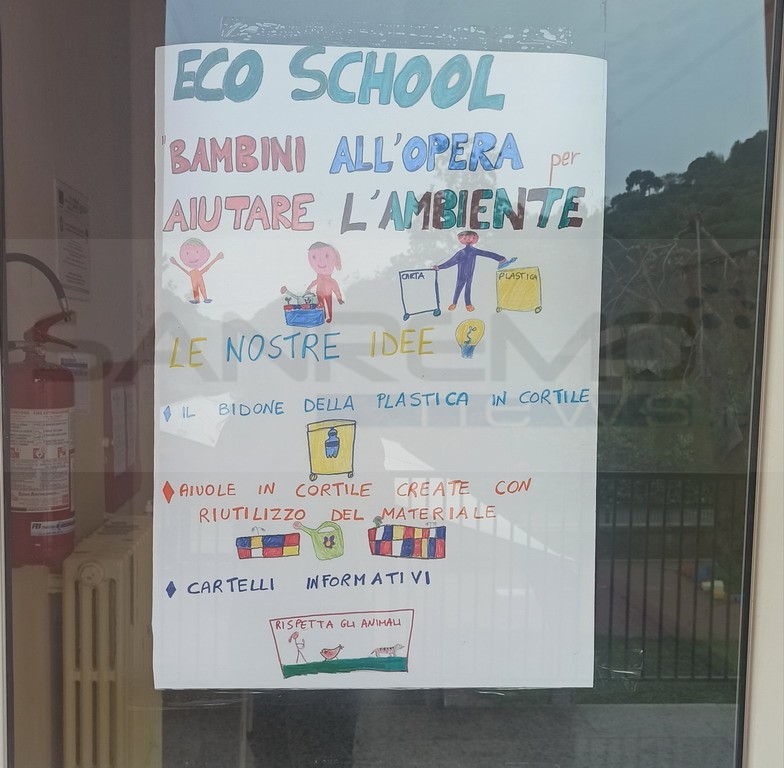 ECO SCHOOL
BAMBINI ALL'OPERA per
AIUTARE L'AMBIENTE
CARTA
PLASTICA
LE NOSTRE IDEE
IL BIDONE DELLA PLASTICA IN CORTILE
AIUOLE IN CORTILE CREATE CON
RIUTILIZZO DEL MATERIALE
CARTELLI INFORMATIVI
RISPETTA GLI ANIMALI
SANREMO
news